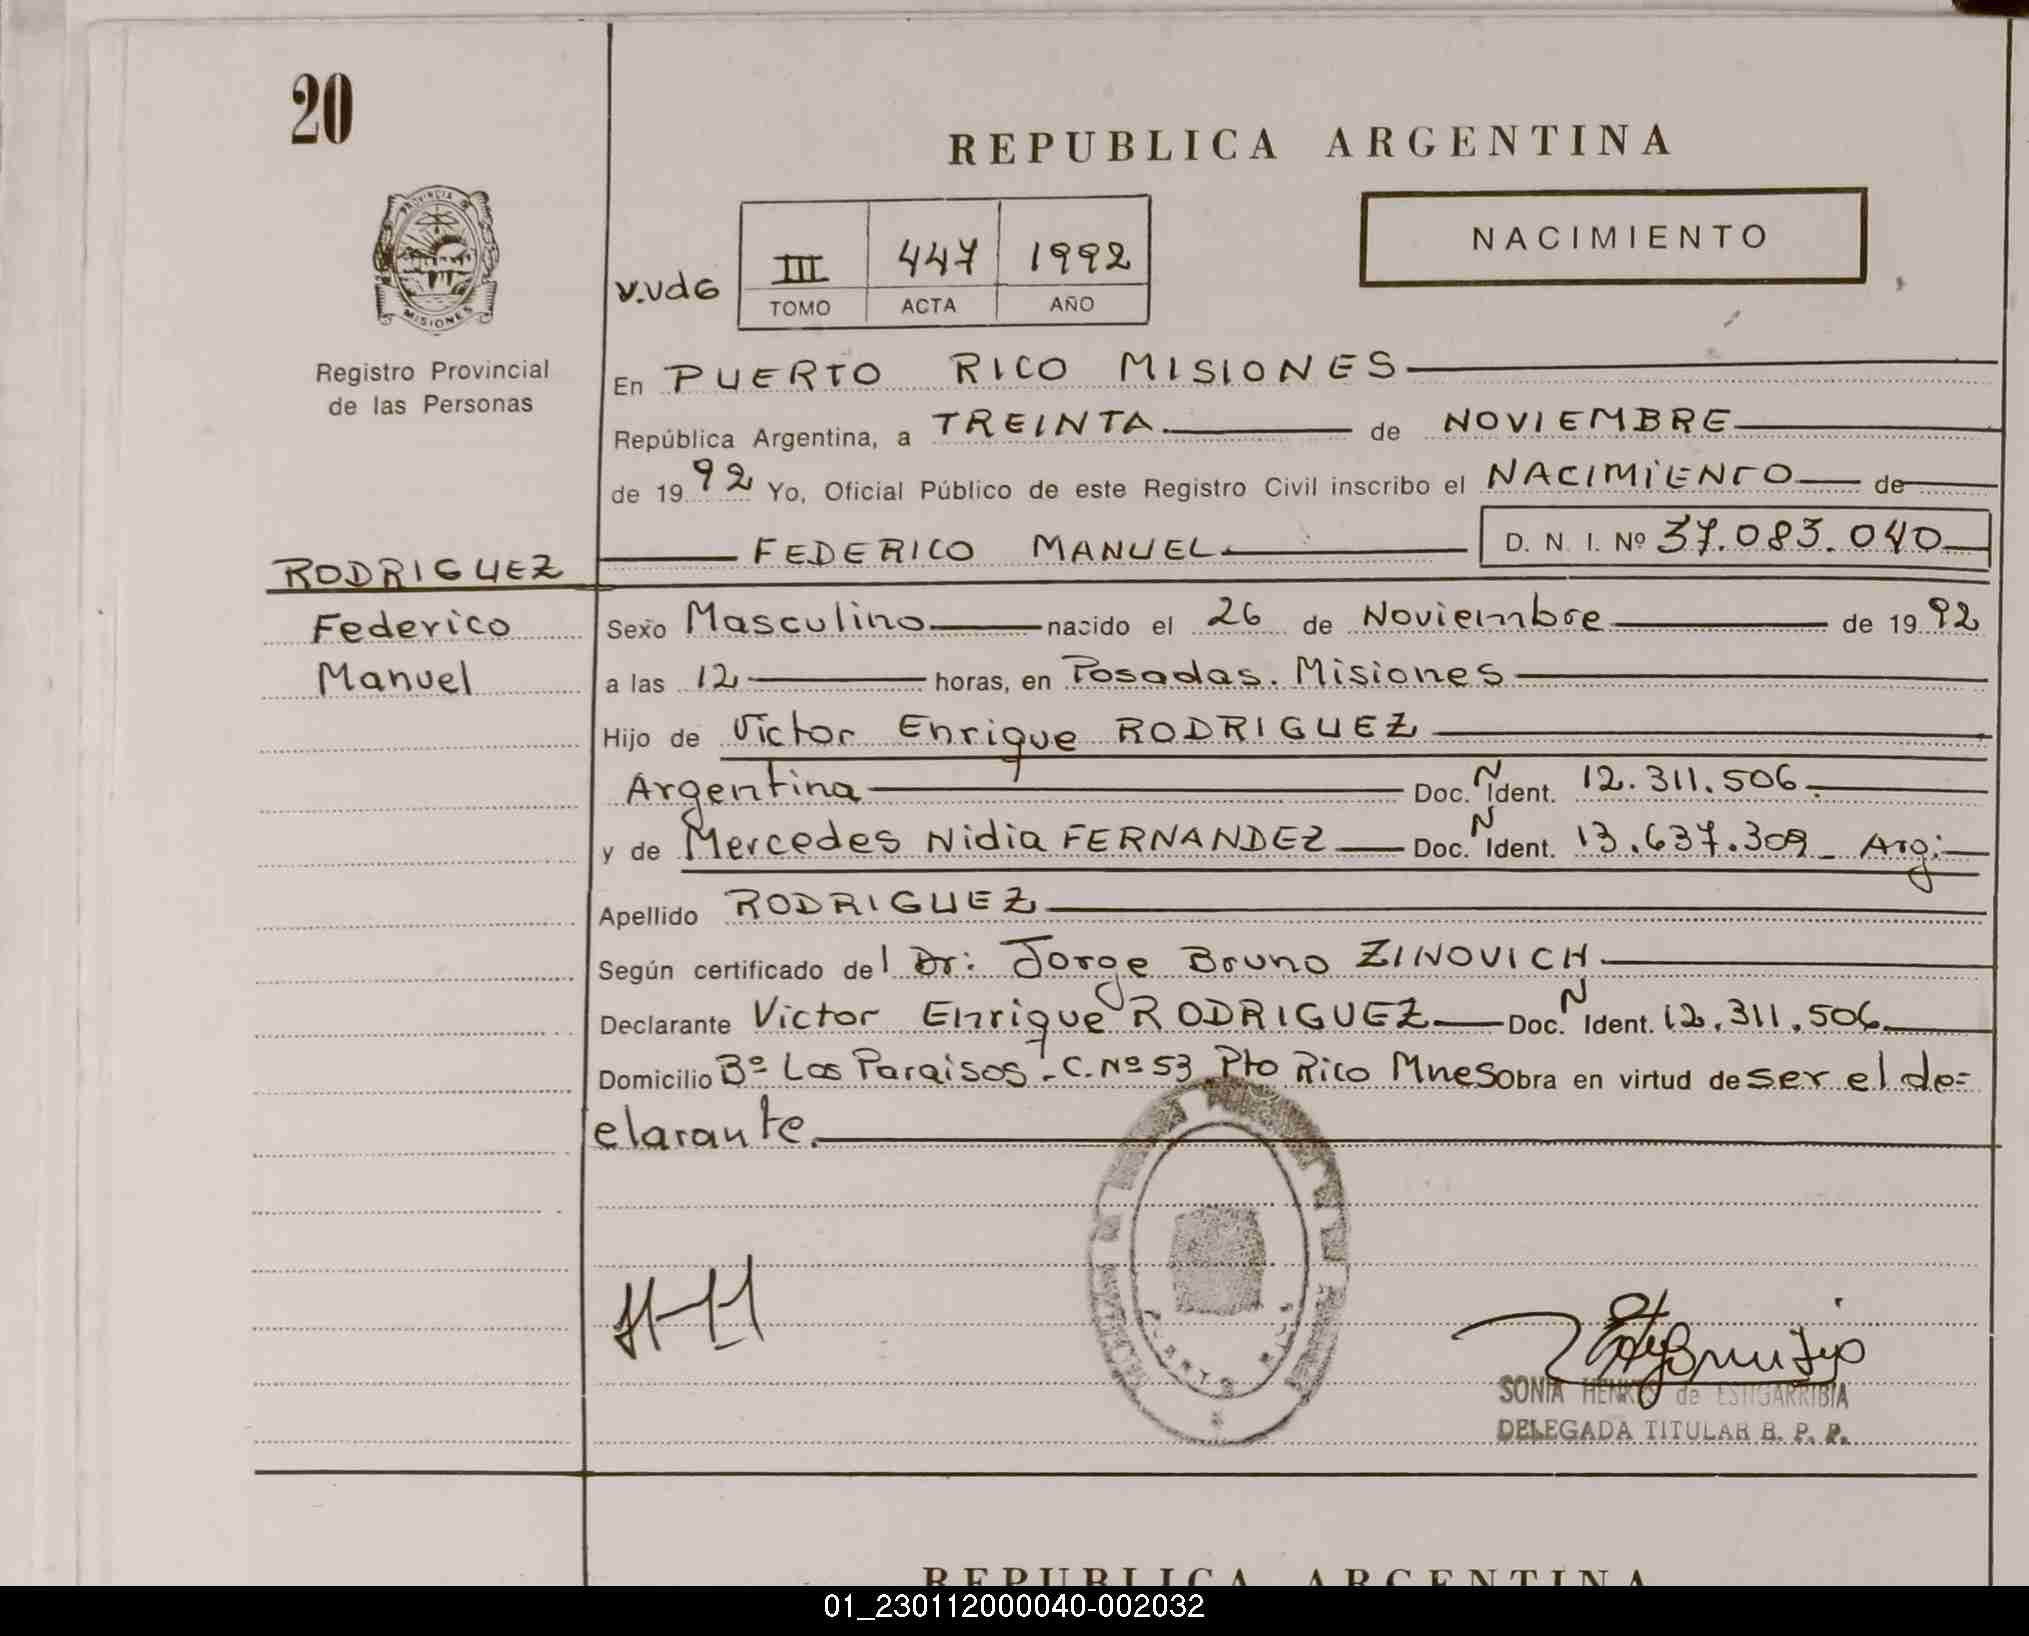 20
REPUBLICA ARGENTINA
PROVINCIA DE
MISIONES
Registro Provincial
de las Personas
NACIMIENTO
V.VdG
III 447 1992
TOMO ACTA AÑO
En PUERTO RICO MISIONES
República Argentina, a TREINTA de NOVIEMBRE
de 1992 Yo, Oficial Público de este Registro Civil inscribo el NACIMIENTO de
FEDERICO MANUEL D. N. I. Nº 37.083.040
RODRIGUEZ
Federico
Manuel
Sexo Masculino nacido el 26 de Noviembre de 1992
a las 12 horas, en Posadas. Misiones
Hijo de Victor Enrique RODRIGUEZ
Argentina Doc. N Ident. 12.311.506.
y de Mercedes Nidia FERNANDEZ Doc. N Ident. 13.637.309 Arg:
Apellido RODRIGUEZ
Según certificado del Dr: Jorge Bruno ZINOVICH
Declarante Victor Enrique RODRIGUEZ Doc. N Ident. 12.311.506
Domicilio Bº Los Paraisos - C. Nº 53 Pto Rico Mnes Obra en virtud de ser el de=
clarante.
PUERTO RICO
SONIA HENKES de ESTIGARRIBIA
DELEGADA TITULAR B. P. P.
REPUBLICA ARGENTINA
01_230112000040-002032